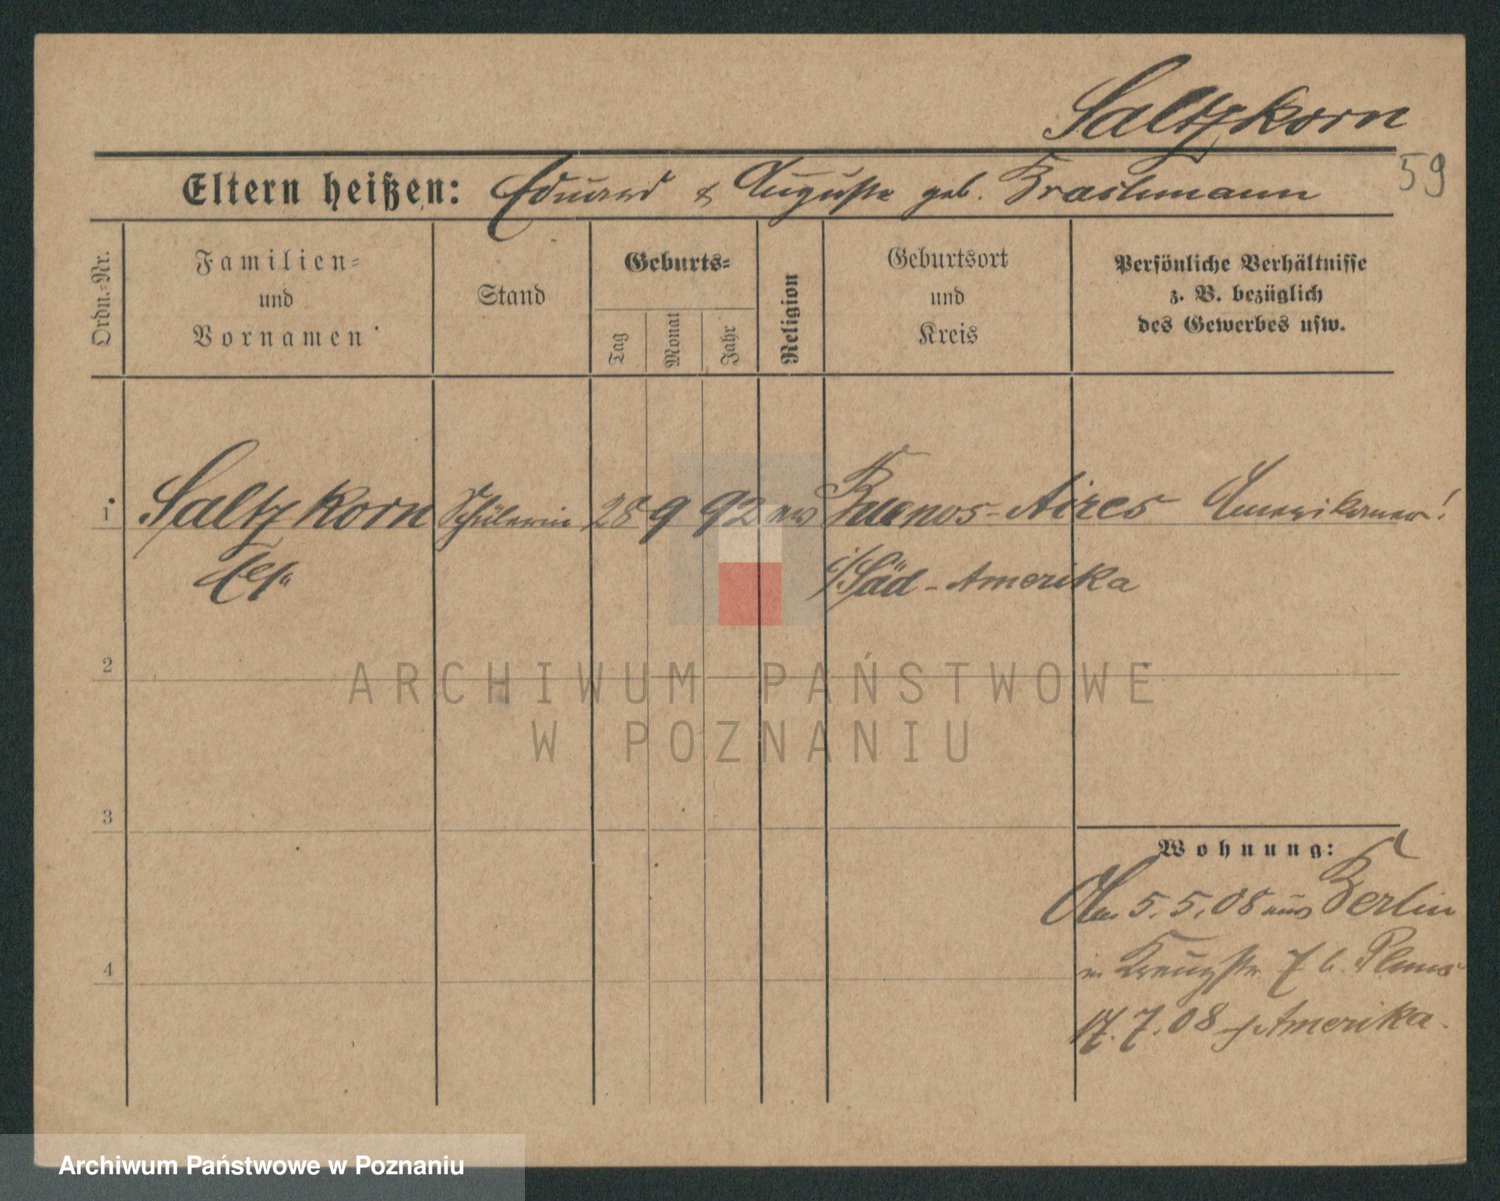 Saltzkorn
59
Eltern heißen: Eduard & Auguste geb. Brachmann
Ordn.-Nr.
Familien-
und
Vornamen
Stand
Geburts-
Tag
Monat
Jahr
Religion
Geburtsort
und
Kreis
Persönliche Verhältnisse
z. B. bezüglich
des Gewerbes usw.
1 Saltzkorn Schülerin 28 9 92 ev Buenos-Aires Amerikaner!
i/Süd-Amerika
2
3
4
Wohnung:
5.5.08 aus Berlin
in Kreuzstr 7 b.
17.7.08 Amerika.
ARCHIWUM PAŃSTWOWE
W POZNANIU
Archiwum Państwowe w Poznaniu